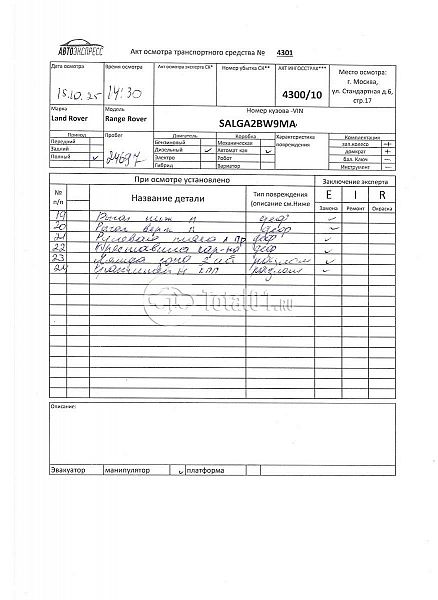 АВТОЭКСПРЕСС
Акт осмотра транспортного средства № 4301
Дата осмотра
Время осмотра
Акт осмотра эксперта СК*
Номер убытка СК**
АКТ ИНГОССТРАХ***
Место осмотра:
г. Москва,
ул. Стандартная д.6,
стр.17
15.10.25
14:30
4300/10
Марка
Модель
Номер кузова -VIN
Land Rover
Range Rover
SALGA2BW9MA
Привод
Пробег
Двигатель
Коробка
Характеристика повреждения
Комплектация
Передний
Бензиновый
Механическая
зап.колесо
Задний
Дизельный
Автомат кая
домкрат
Полный
24697
Электро
Робот
бал. Ключ
Гибрид
Вариатор
Инструмент
При осмотре установлено
Заключение эксперта
№ п/п
Название детали
Тип повреждения
(описание см.Ниже
E I R
Замена Ремонт Окраска
19 Рычаг ниж п
20 Рычаг верх п
21 Рулевая тяга
22
23
24
Total01.ru
Описание:
Эвакуатор
манипулятор
платформа